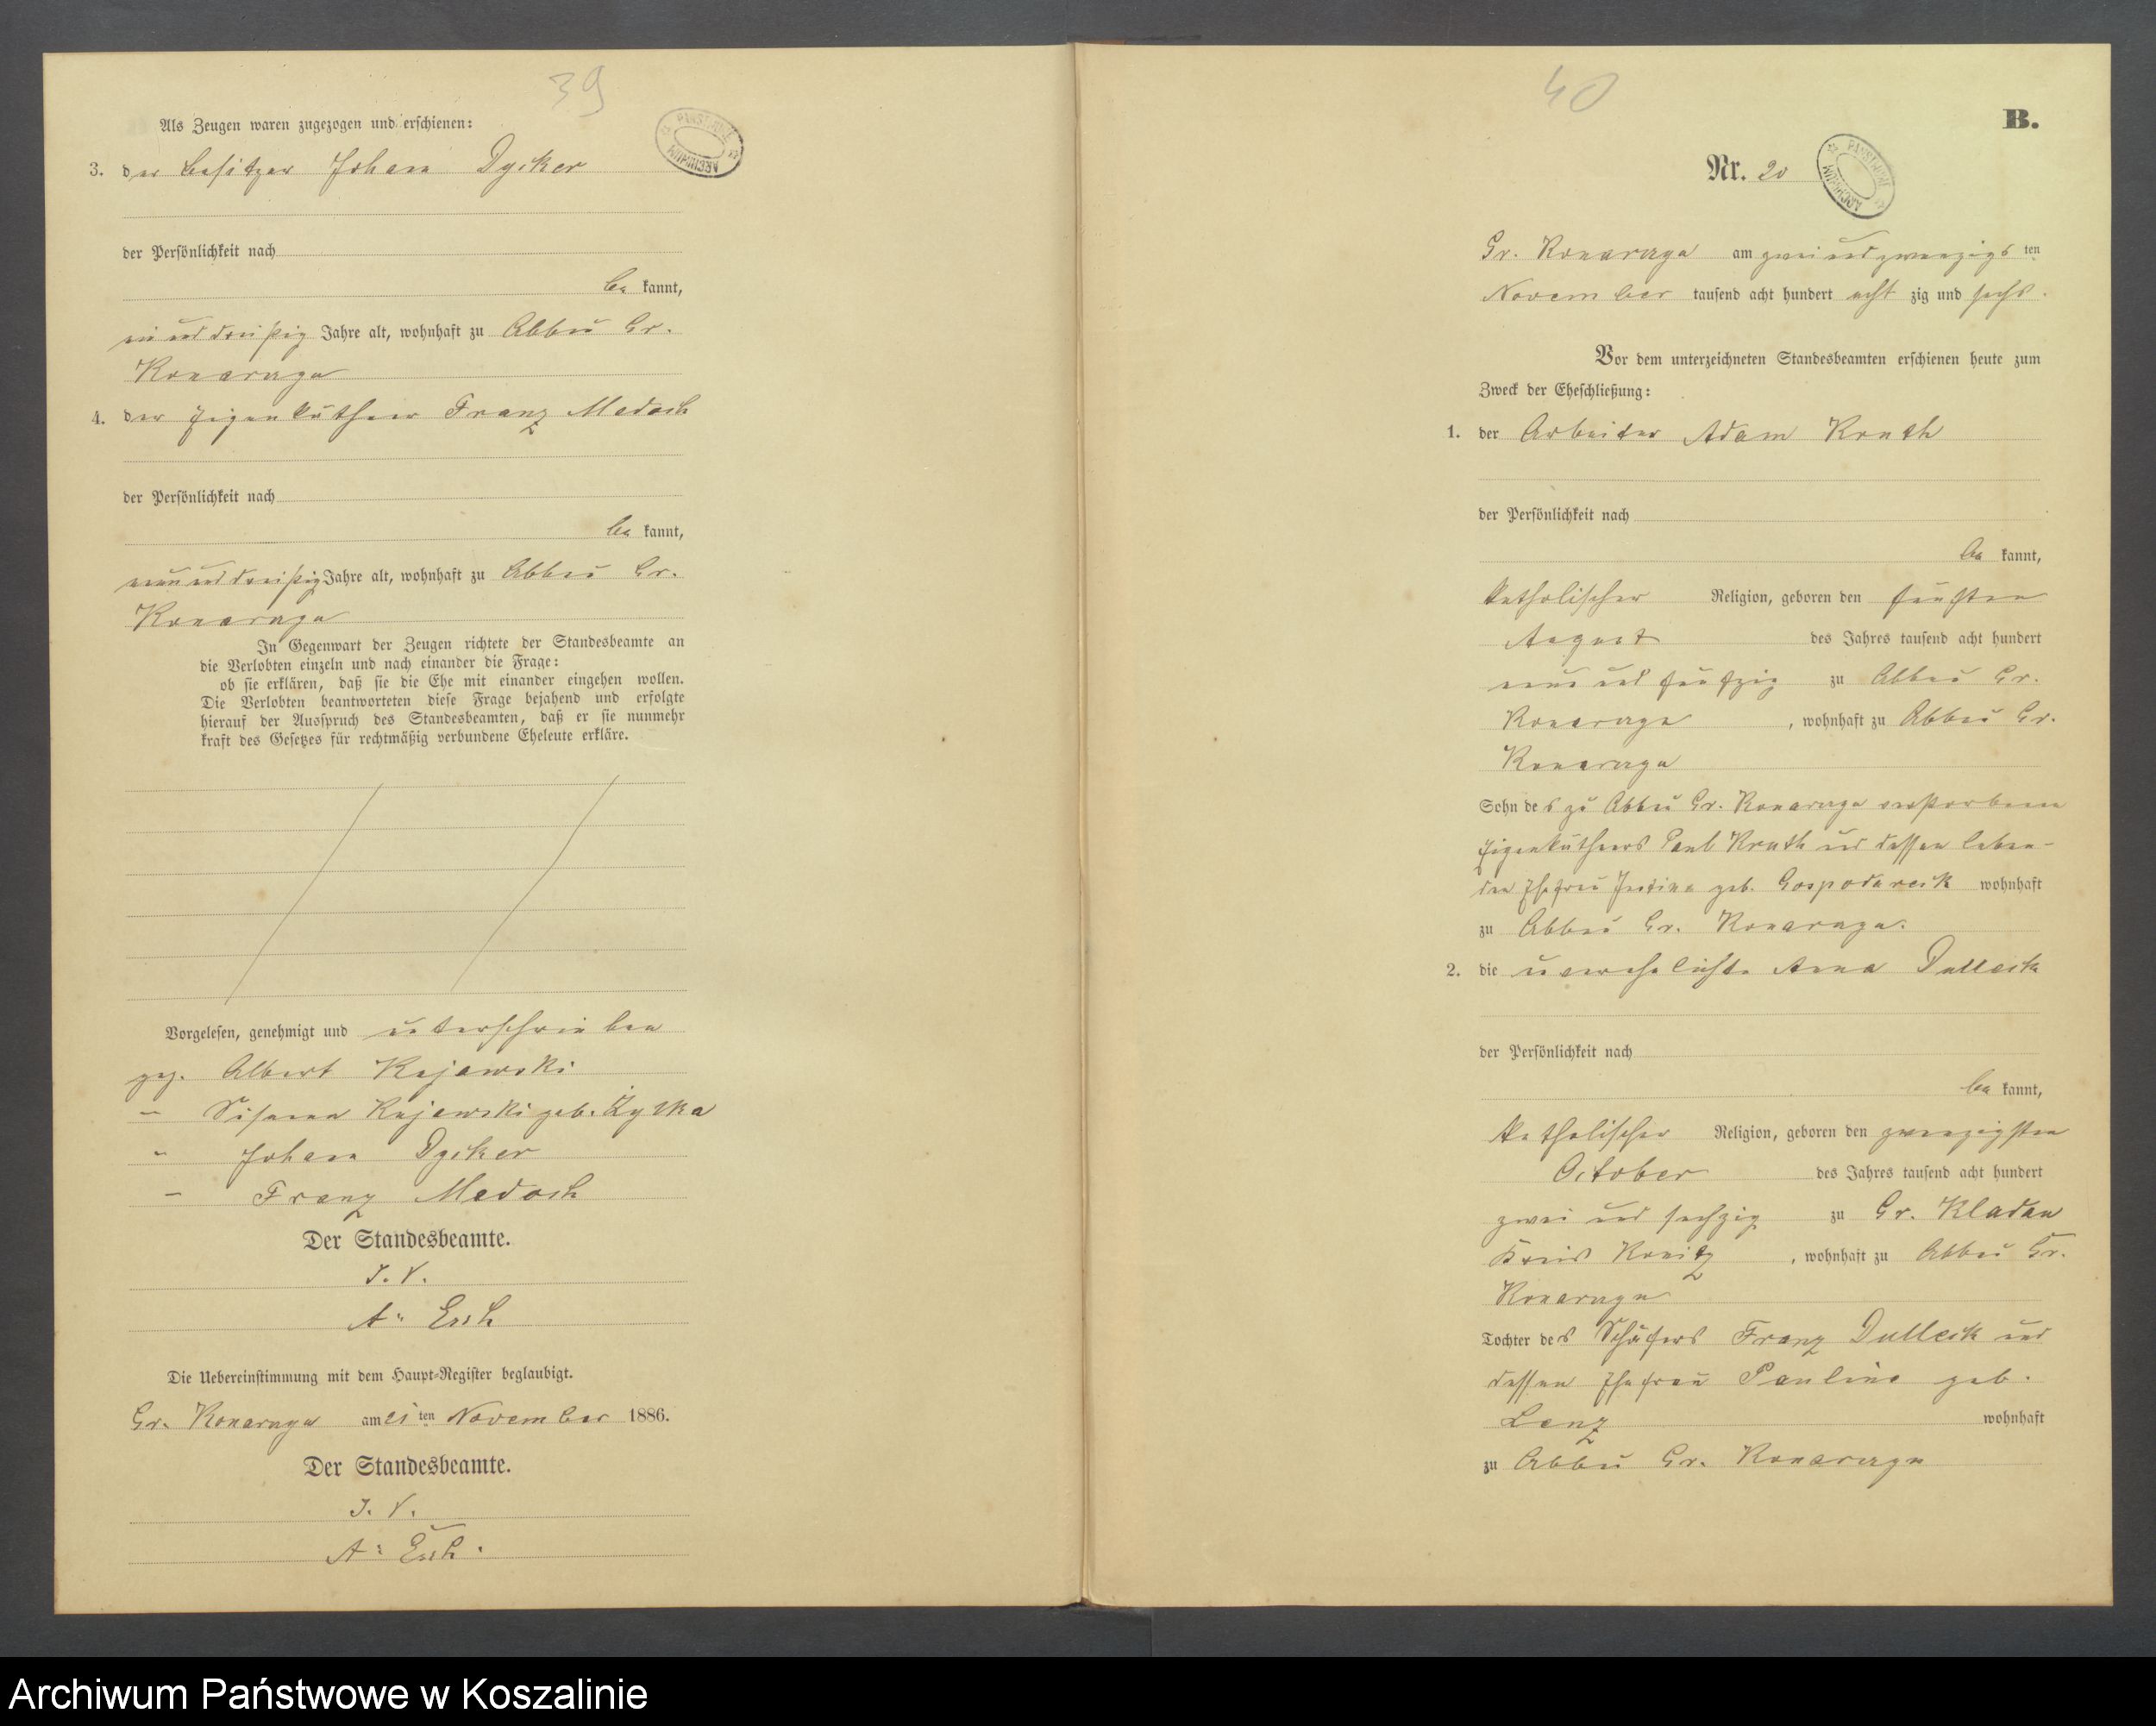 39
Als Zeugen waren zugezogen und erschienen:
PANSTWOWE ARCHIWUM
3. der Besitzer Johann Dycker
der Persönlichkeit nach
be kannt,
ein und dreißig Jahre alt, wohnhaft zu Abbau Gr.
Konarzyn
4. der Eigenkäthner Franz Madosch
der Persönlichkeit nach
be kannt,
neun und dreißig Jahre alt, wohnhaft zu Abbau Gr.
Konarzyn
In Gegenwart der Zeugen richtete der Standesbeamte an
die Verlobten einzeln und nach einander die Frage:
ob sie erklären, daß sie die Ehe mit einander eingehen wollen.
Die Verlobten beantworteten diese Frage bejahend und erfolgte
hierauf der Ausspruch des Standesbeamten, daß er sie nunmehr
kraft des Gesetzes für rechtmäßig verbundene Eheleute erkläre.
Vorgelesen, genehmigt und unterschrieben
gez. Albert Kujawski
" Susanna Kujawski geb. Zyska
" Johann Dycker
" Franz Madosch
Der Standesbeamte.
I. V.
A.
Die Uebereinstimmung mit dem Haupt-Register beglaubigt.
Gr. Konarzyn am 21 ten November 1886.
Der Standesbeamte.
I. V.
A.
40
B.
Nr. 20
PANSTWOWE ARCHIWUM
Gr. Konarzyn am zwei und zwanzigs ten
November tausend acht hundert acht zig und sechs.
Vor dem unterzeichneten Standesbeamten erschienen heute zum
Zweck der Eheschließung:
1. der Arbeiter Adam Knuth
der Persönlichkeit nach
be kannt,
katholischer Religion, geboren den fünften
August des Jahres tausend acht hundert
neun und fünfzig zu Abbau Gr.
Konarzyn, wohnhaft zu Abbau Gr.
Konarzyn
Sohn des zu Abbau Gr. Konarzyn verstorbenen
Eigenkäthners Paul Knuth und dessen leben-
den Ehefrau Justina geb. Gospodareck wohnhaft
zu Abbau Gr. Konarzyn.
2. die unverehelichte Anna Dulleck
der Persönlichkeit nach
be kannt,
katholischer Religion, geboren den zwanzigsten
October des Jahres tausend acht hundert
zwei und sechzig zu Gr. Kladau
Kreis Konitz, wohnhaft zu Abbau Gr.
Konarzyn
Tochter des Schäfers Franz Dulleck und
dessen Ehefrau Pauline geb.
Lenz wohnhaft
zu Abbau Gr. Konarzyn
Archiwum Państwowe w Koszalinie